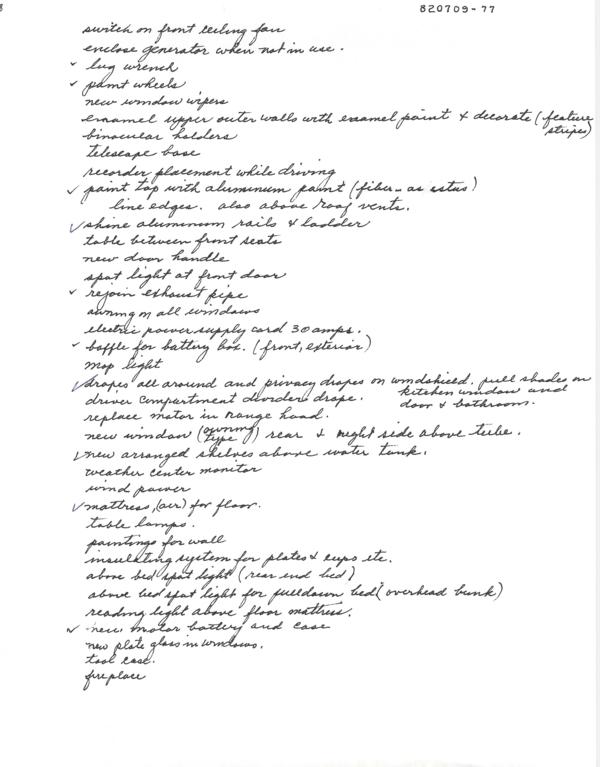 820709-77
switch on front ceiling fan
enclose generator when not in use.
✓ lug wrench
✓ paint wheels
new window wipers
enamel upper outer walls with enamel paint & decorate (feature
stripes)
binocular holders
telescape base
recorder placement while driving
✓ paint top with aluminum paint (fiber-as estus)
line edges. also above roof vents.
✓ shine aluminum rails & ladder
table between front seats
new door handle
spot light at front door
✓ rejoin exhaust pipe
awning on all windows
electric power supply cord 30 amps.
✓ baffle for battery box. (front, exterior)
map light
✓ drapes all around and privacy drapes on windshield. pull shades on
kitchen window and
driver compartment dividers drape. door & bathroom.
replace motor in range hood.
new window (awning type) rear & right side above tube.
✓ new arranged shelves above water tank.
weather center monitor
wind power
✓ mattress, (air) for floor.
table lamps.
paintings for wall
insulating system for plates & cups etc.
above bed spot light (rear end bed)
above bed spot light for pulldown bed (overhead bunk)
reading light above floor mattress.
✓ new motor battery and case
new plate glass in windows.
tool case.
fireplace